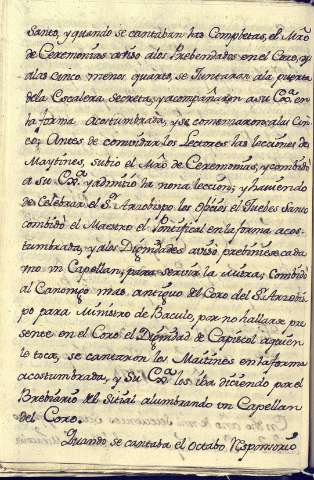 Santo, y quando se cantaban las Completas, el Mro
de Ceremonias aviso a los Prebendados en el Coro, q
a las cinco menos quarto, se Juntaran a la puerta
dela Escalera Secreta, y acompañaron a su Exa. en
la forma acostumbrada, y se comenzaron a las Cin-
co; Antes de comenzar los Lectores las lecciones de
Maytines, subio el Mro. de Ceremonias, y combidò
a su Exa. y admitio la nona leccion; y haviendo
de Celebrar el Sr. Arzobispo los Oficios el Jueves Santo
combidò el Maestro el Pontifical en la forma acos-
tumbrada, y a los Dignidades aviso previniese cada
uno un Capellan, para servir la Mitra; Combidò
al Canonigo mas antiguo del Coro del Sr. Arzobis-
po para Ministro de Baculo, por no hallarse pre
sente en el Coro el Dignidad de Capiscol aquien
le toca, se cantaron los Maitines en la forma
acostumbrada, y Su Exa. los iba diciendo por el
Brebiario del Sitial alumbrando un Capellan
del Coro.
Quando se cantaba el Octabo Responsorio